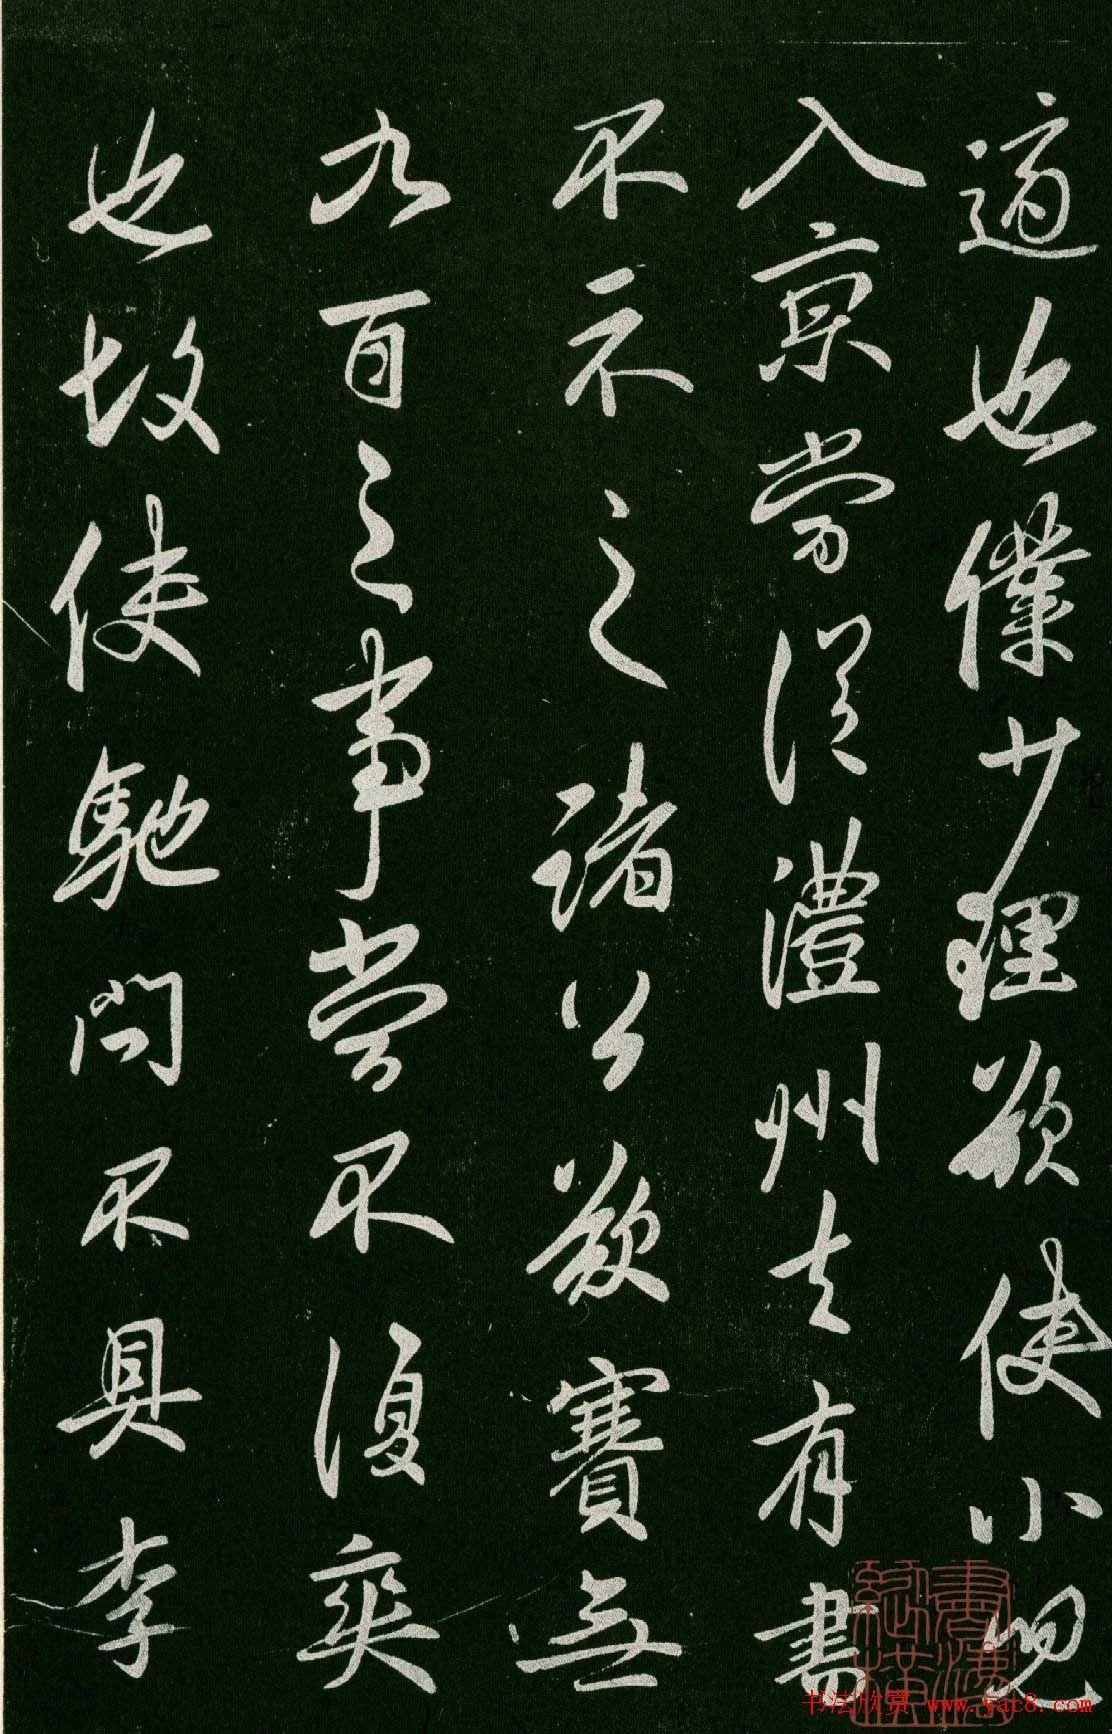 適也僕少理欲使小兒
入京當從澧州去有書
不示之諸公欲賽無
九百之事當不復爽
也故使馳問不具李
书法欣赏 www.yac8.com